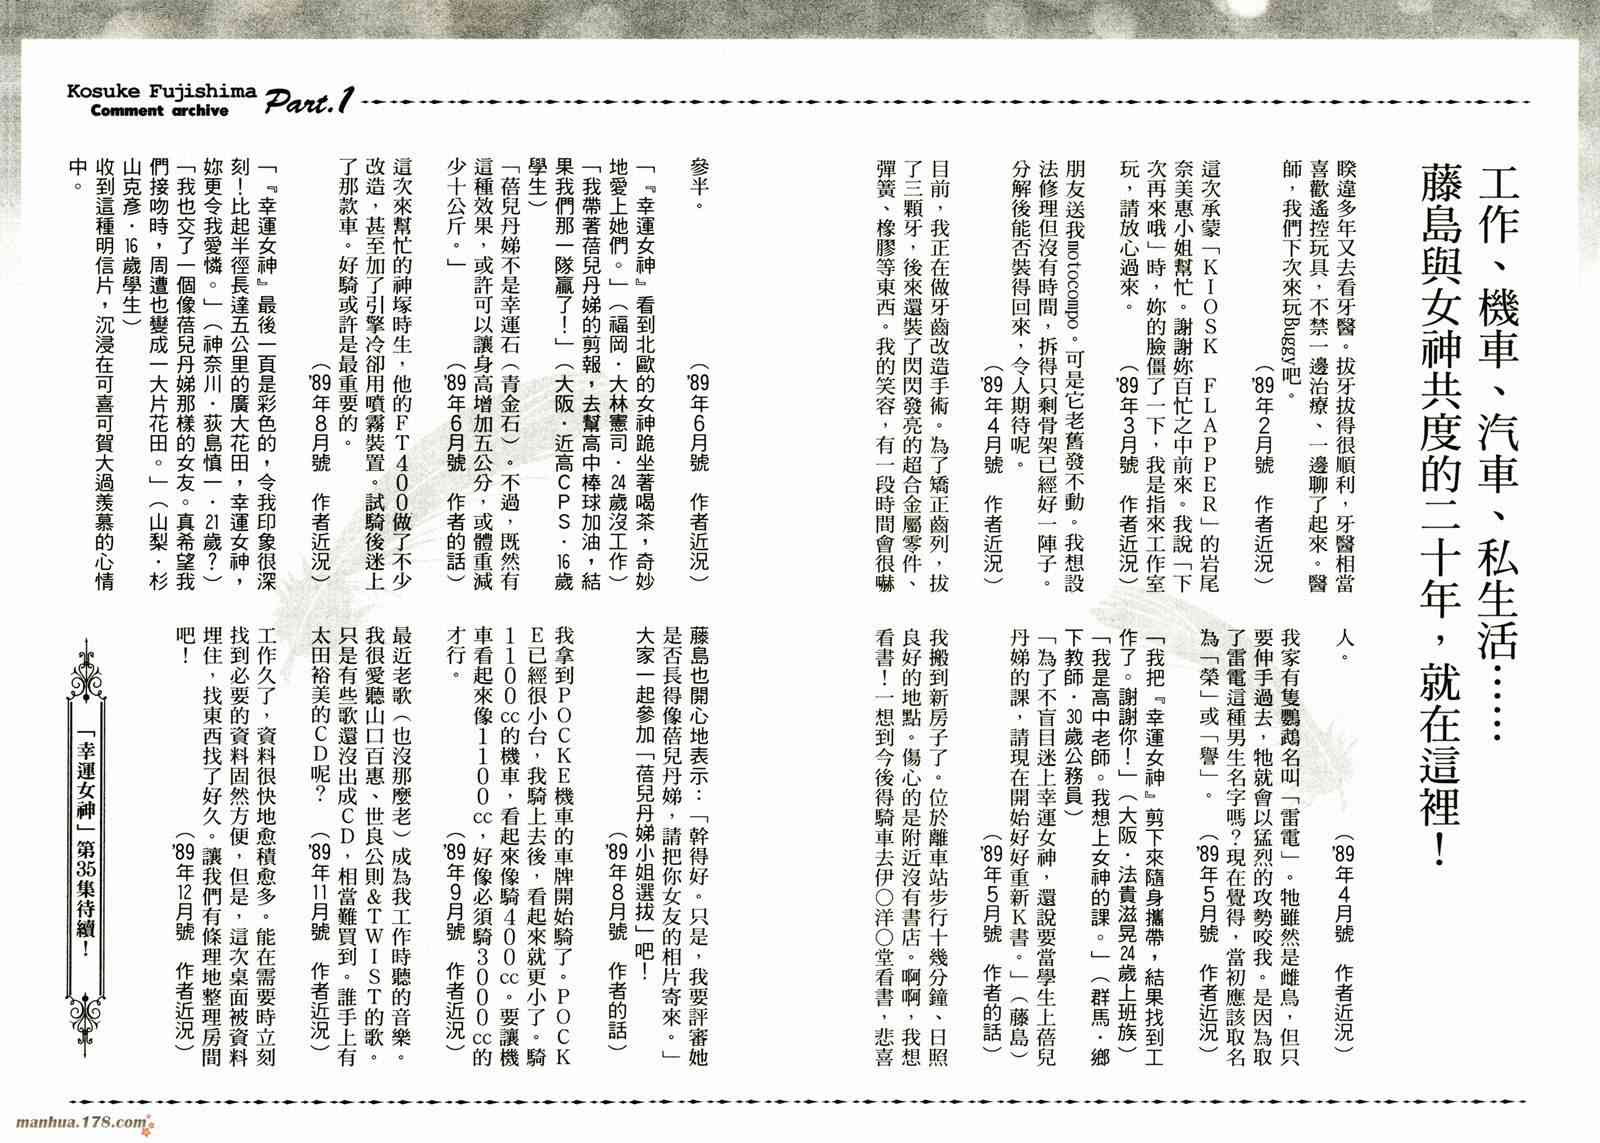 Kosuke Fujishima
Comment archive
Part.1
工作、機車、汽車、私生活……
藤島與女神共度的二十年，就在這裡！
睽違多年又去看牙醫。拔牙拔得很順利，牙醫相當
喜歡遙控玩具，不禁一邊治療、一邊聊了起來。醫
師，我們下次來玩Buggy吧。
（'89年2月號　作者近況）
這次承蒙「KIOSK　FLAPPER」的岩尾
奈美惠小姐幫忙。謝謝妳百忙之中前來。我說「下
次再來哦」時，妳的臉僵了一下，我是指來工作室
玩，請放心過來。
（'89年3月號　作者近況）
朋友送我motocompo。可是它老舊發不動。我想設
法修理但沒有時間，拆得只剩骨架已經好一陣子。
分解後能否裝得回來，令人期待呢。
（'89年4月號　作者近況）
目前，我正在做牙齒改造手術。為了矯正齒列，拔
了三顆牙，後來還裝了閃閃發亮的超合金屬零件、
彈簧、橡膠等東西。我的笑容，有一段時間會很嚇
人。
（'89年4月號　作者近況）
我家有隻鸚鵡名叫「雷電」。牠雖然是雌鳥，但只
要伸手過去，牠就會以猛烈的攻勢咬我。是因為取
了雷電這種男生名字嗎？現在覺得，當初應該取名
為「榮」或「譽」。
（'89年5月號　作者近況）
「我把『幸運女神』剪下來隨身攜帶，結果找到工
作了。謝謝你！」（大阪・法貴滋晃24歲上班族）
「我是高中老師。我想上女神的課。」（群馬・鄉
下教師・30歲公務員）
「為了不盲目迷上幸運女神，還說要當學生上蓓兒
丹娣的課，請現在開始好好重新K書。」（藤島）
（'89年5月號　作者的話）
我搬到新房子了。位於離車站步行十幾分鐘、日照
良好的地點。傷心的是附近沒有書店。啊啊，我想
看書！一想到今後得騎車去伊〇洋〇堂看書，悲喜
參半。
（'89年6月號　作者近況）
「『幸運女神』看到北歐的女神跪坐著喝茶，奇妙
地愛上她們。」（福岡・大林憲司・24歲沒工作）
「我帶著蓓兒丹娣的剪報，去幫高中棒球加油，結
果我們那一隊贏了！」（大阪・近高CPS・16歲
學生）
「蓓兒丹娣不是幸運石（青金石）。不過，既然有
這種效果，或許可以讓身高增加五公分，或體重減
少十公斤。」
（'89年6月號　作者的話）
這次來幫忙的神塚時生，他的FT400做了不少
改造，甚至加了引擎冷卻用噴霧裝置。試騎後迷上
了那款車。好騎或許是最重要的。
（'89年8月號　作者近況）
「『幸運女神』最後一頁是彩色的，令我印象很深
刻！比起半徑長達五公里的廣大花田，幸運女神，
妳更令我愛憐。」（神奈川・荻島慎一・21歲？）
「我也交了一個像蓓兒丹娣那樣的女友。真希望我
們接吻時，周遭也變成一大片花田。」（山梨・杉
山克彥・16歲學生）
收到這種明信片，沉浸在可喜可賀大過羨慕的心情
中。
藤島也開心地表示：「幹得好。只是，我要評審她
是否長得像蓓兒丹娣，請把你女友的相片寄來。」
大家一起參加「蓓兒丹娣小姐選拔」吧！
（'89年8月號　作者的話）
我拿到POCKE機車的車牌開始騎了。POCK
E已經很小台，我騎上去後，看起來就更小了。騎
1100cc的機車，看起來像騎400cc。要讓機
車看起來像1100cc，好像必須騎3000cc的
才行。
（'89年9月號　作者近況）
最近老歌（也沒那麼老）成為我工作時聽的音樂。
我很愛聽山口百惠、世良公則&TWIST的歌。
只是有些歌還沒出成CD，相當難買到。誰手上有
太田裕美的CD呢？
（'89年11月號　作者近況）
工作久了，資料很快地愈積愈多。能在需要時立刻
找到必要的資料固然方便，但是，這次桌面被資料
埋住，找東西找了好久。讓我們有條理地整理房間
吧！
（'89年12月號　作者近況）
「幸運女神」第35集待續！
manhua.178.com